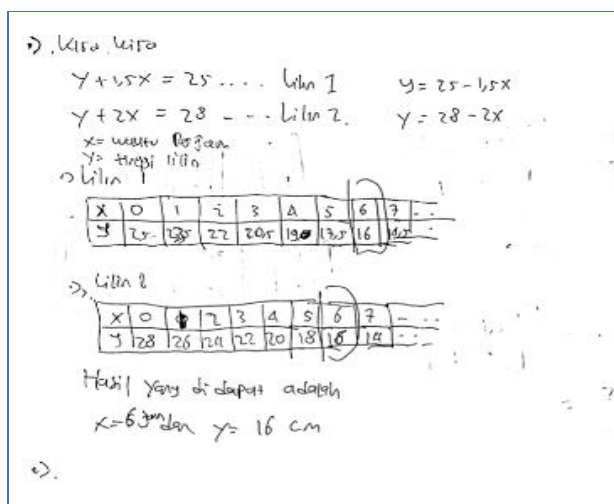 Kira kira
y + 1,5x = 25 .... Lilin I y = 25 - 1,5x
y + 2x = 28 --.. Lilin 2. y = 28 - 2x
x = waktu Perjam
y = tinggi lilin
Lilin 1
x | 0 | 1 | 2 | 3 | 4 | 5 | 6 | 7 | ..
y | 25 | 23,5 | 22 | 20,5 | 19 | 17,5 | 16 | 14,5 | ..
Lilin 2
x | 0 | 1 | 2 | 3 | 4 | 5 | 6 | 7 | -..
y | 28 | 26 | 24 | 22 | 20 | 18 | 16 | 14 | ...
Hasil yang di dapat adalah
x = 6 jam dan y = 16 cm